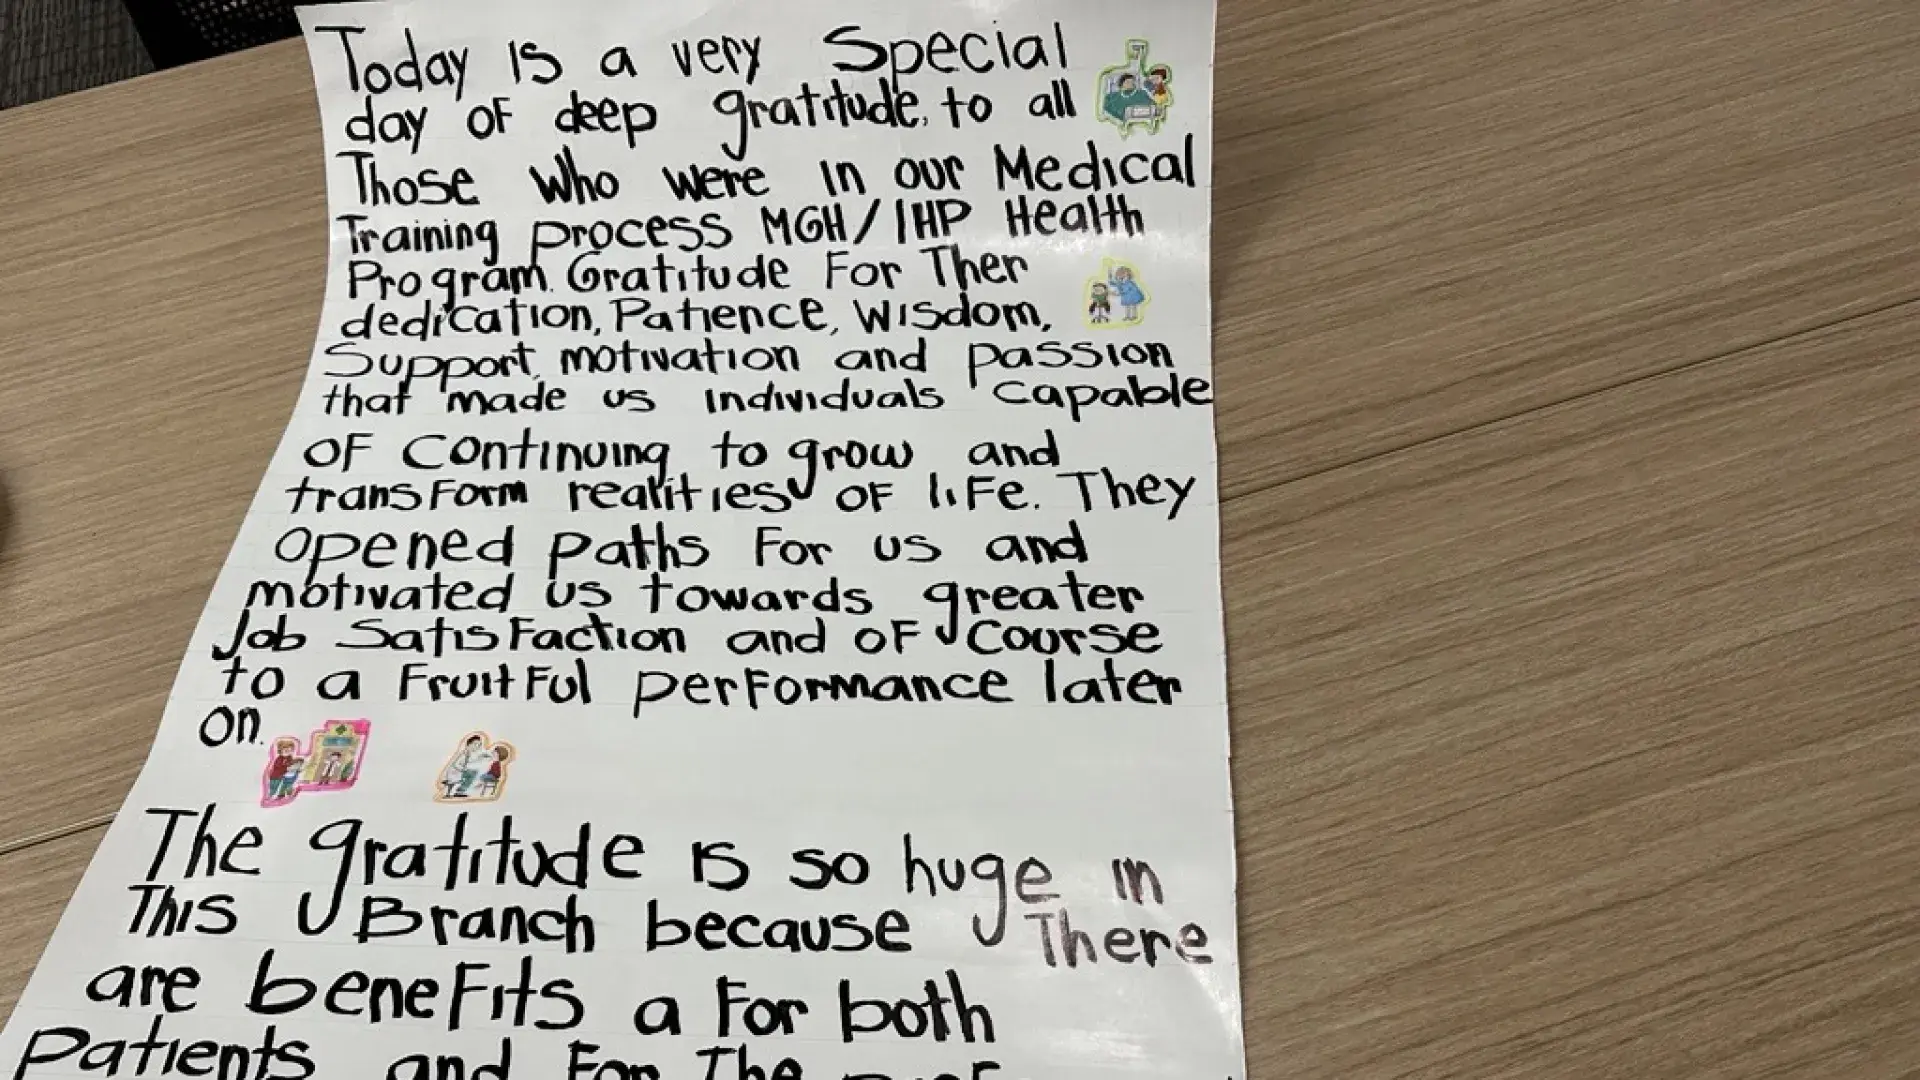 Today is a very Special
day of deep gratitude, to all
Those who were in our Medical
Training process MGH/IHP Health
Program. Gratitude For Ther
dedication, Patience, Wisdom,
Support, motivation and passion
that made us individuals capable
of continuing to grow and
transform realities of life. They
opened paths for us and
motivated us towards greater
Job Satisfaction and of course
to a Fruitful performance later
on.
The gratitude is so huge in
This Branch because There
are benefits a For both
Patients and For The